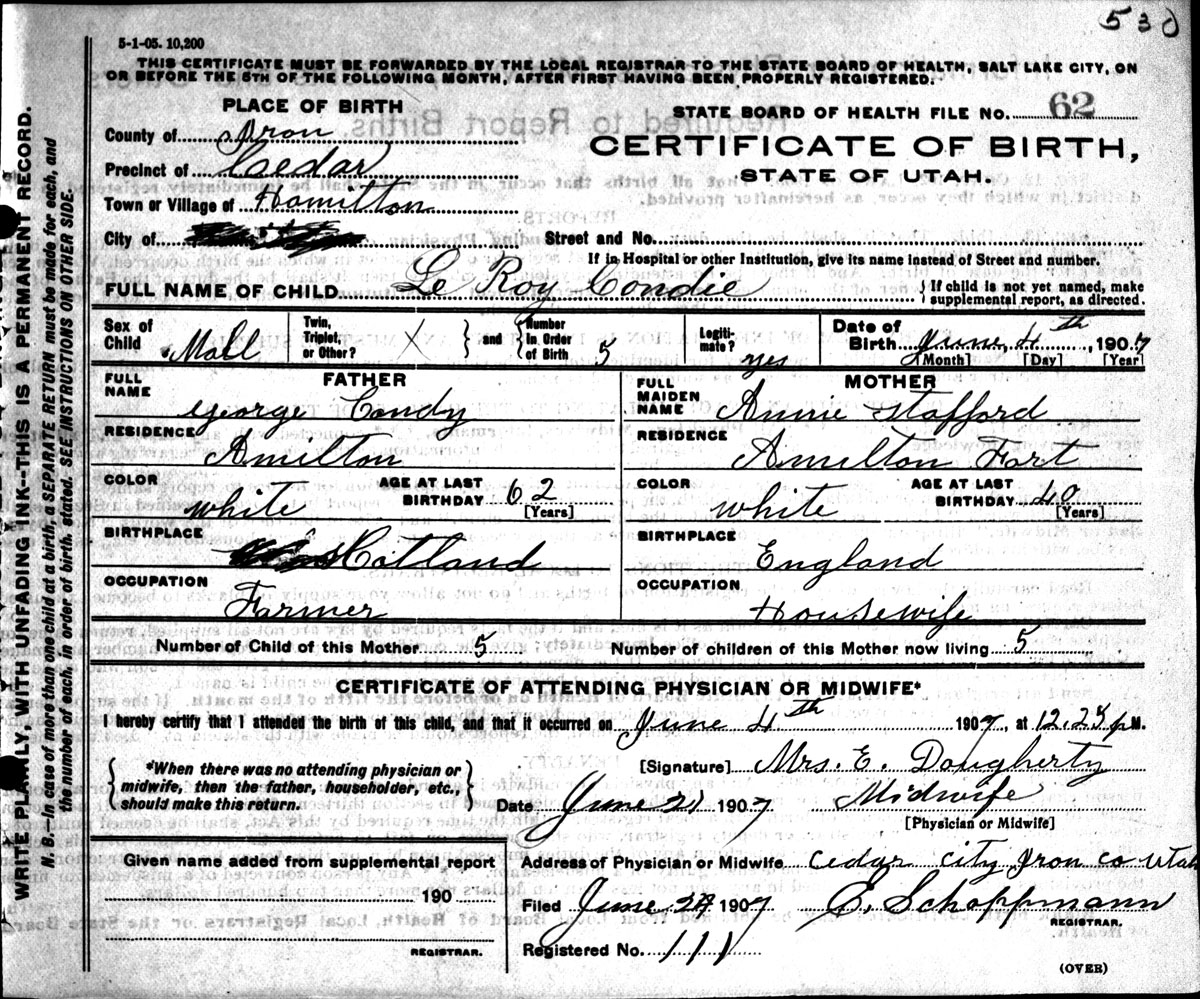 530
5-1-05. 10,200
THIS CERTIFICATE MUST BE FORWARDED BY THE LOCAL REGISTRAR TO THE STATE BOARD OF HEALTH, SALT LAKE CITY, ON
OR BEFORE THE 5TH OF THE FOLLOWING MONTH, AFTER FIRST HAVING BEEN PROPERLY REGISTERED.
PLACE OF BIRTH
STATE BOARD OF HEALTH FILE NO. 62
County of Iron
CERTIFICATE OF BIRTH,
Precinct of Cedar
STATE OF UTAH.
Town or Village of Hamilton
City of
Street and No.
If in Hospital or other Institution, give its name instead of Street and number.
FULL NAME OF CHILD Le Roy Condie
If child is not yet named, make
supplemental report, as directed.
Sex of Child Mall
Twin, Triplet, or Other? X
and Number In Order of Birth 5
Legitimate? yes
Date of Birth June 4th, 1907
[Month] [Day] [Year]
FATHER
FULL NAME george Condy
RESIDENCE Amilton
COLOR white
AGE AT LAST BIRTHDAY 62
[Years]
BIRTHPLACE sCotland
OCCUPATION Farmer
MOTHER
FULL MAIDEN NAME Annie Stafford
RESIDENCE Amilton Fort
COLOR white
AGE AT LAST BIRTHDAY 40
[Years]
BIRTHPLACE England
OCCUPATION Housewife
Number of Child of this Mother 5
Number of children of this Mother now living 5
CERTIFICATE OF ATTENDING PHYSICIAN OR MIDWIFE*
I hereby certify that I attended the birth of this child, and that it occurred on June 4th 1907, at 12,25 p M.
*When there was no attending physician or
midwife, then the father, householder, etc.,
should make this return.
[Signature] Mrs. E. Dougherty
Date June 21 1907
Midwife
[Physician or Midwife]
Given name added from supplemental report
190
REGISTRAR.
Address of Physician or Midwife cedar city Iron co Utah
Filed June 1907 E. Schoppmann
REGISTRAR.
Registered No. 111
(OVER)
WRITE PLAINLY, WITH UNFADING INK--THIS IS A PERMANENT RECORD.
N. B.--In case of more than one child at a birth, a SEPARATE RETURN must be made for each, and
the number of each, in order of birth, stated. SEE INSTRUCTIONS ON OTHER SIDE.